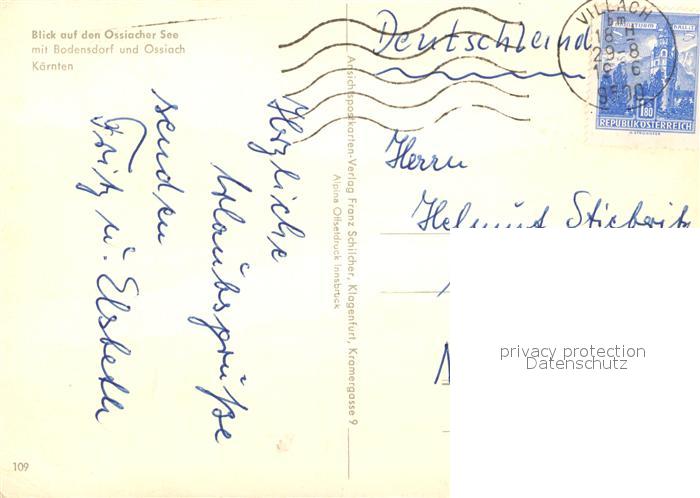 Blick auf den Ossiacher See
mit Bodensdorf und Ossiach
Kärnten
Herzliche
Urlaubsgrüße
senden
Fritz u. Elsbeth
109
Ansichtspostkarten-Verlag Franz Schilcher, Klagenfurt, Kramergasse 9
Alpina Offsetdruck Innsbruck
Deutschland
VILLACH
18-
29-8
9500
1.80
REPUBLIK ÖSTERREICH
Herrn
Helmut
privacy protection
Datenschutz